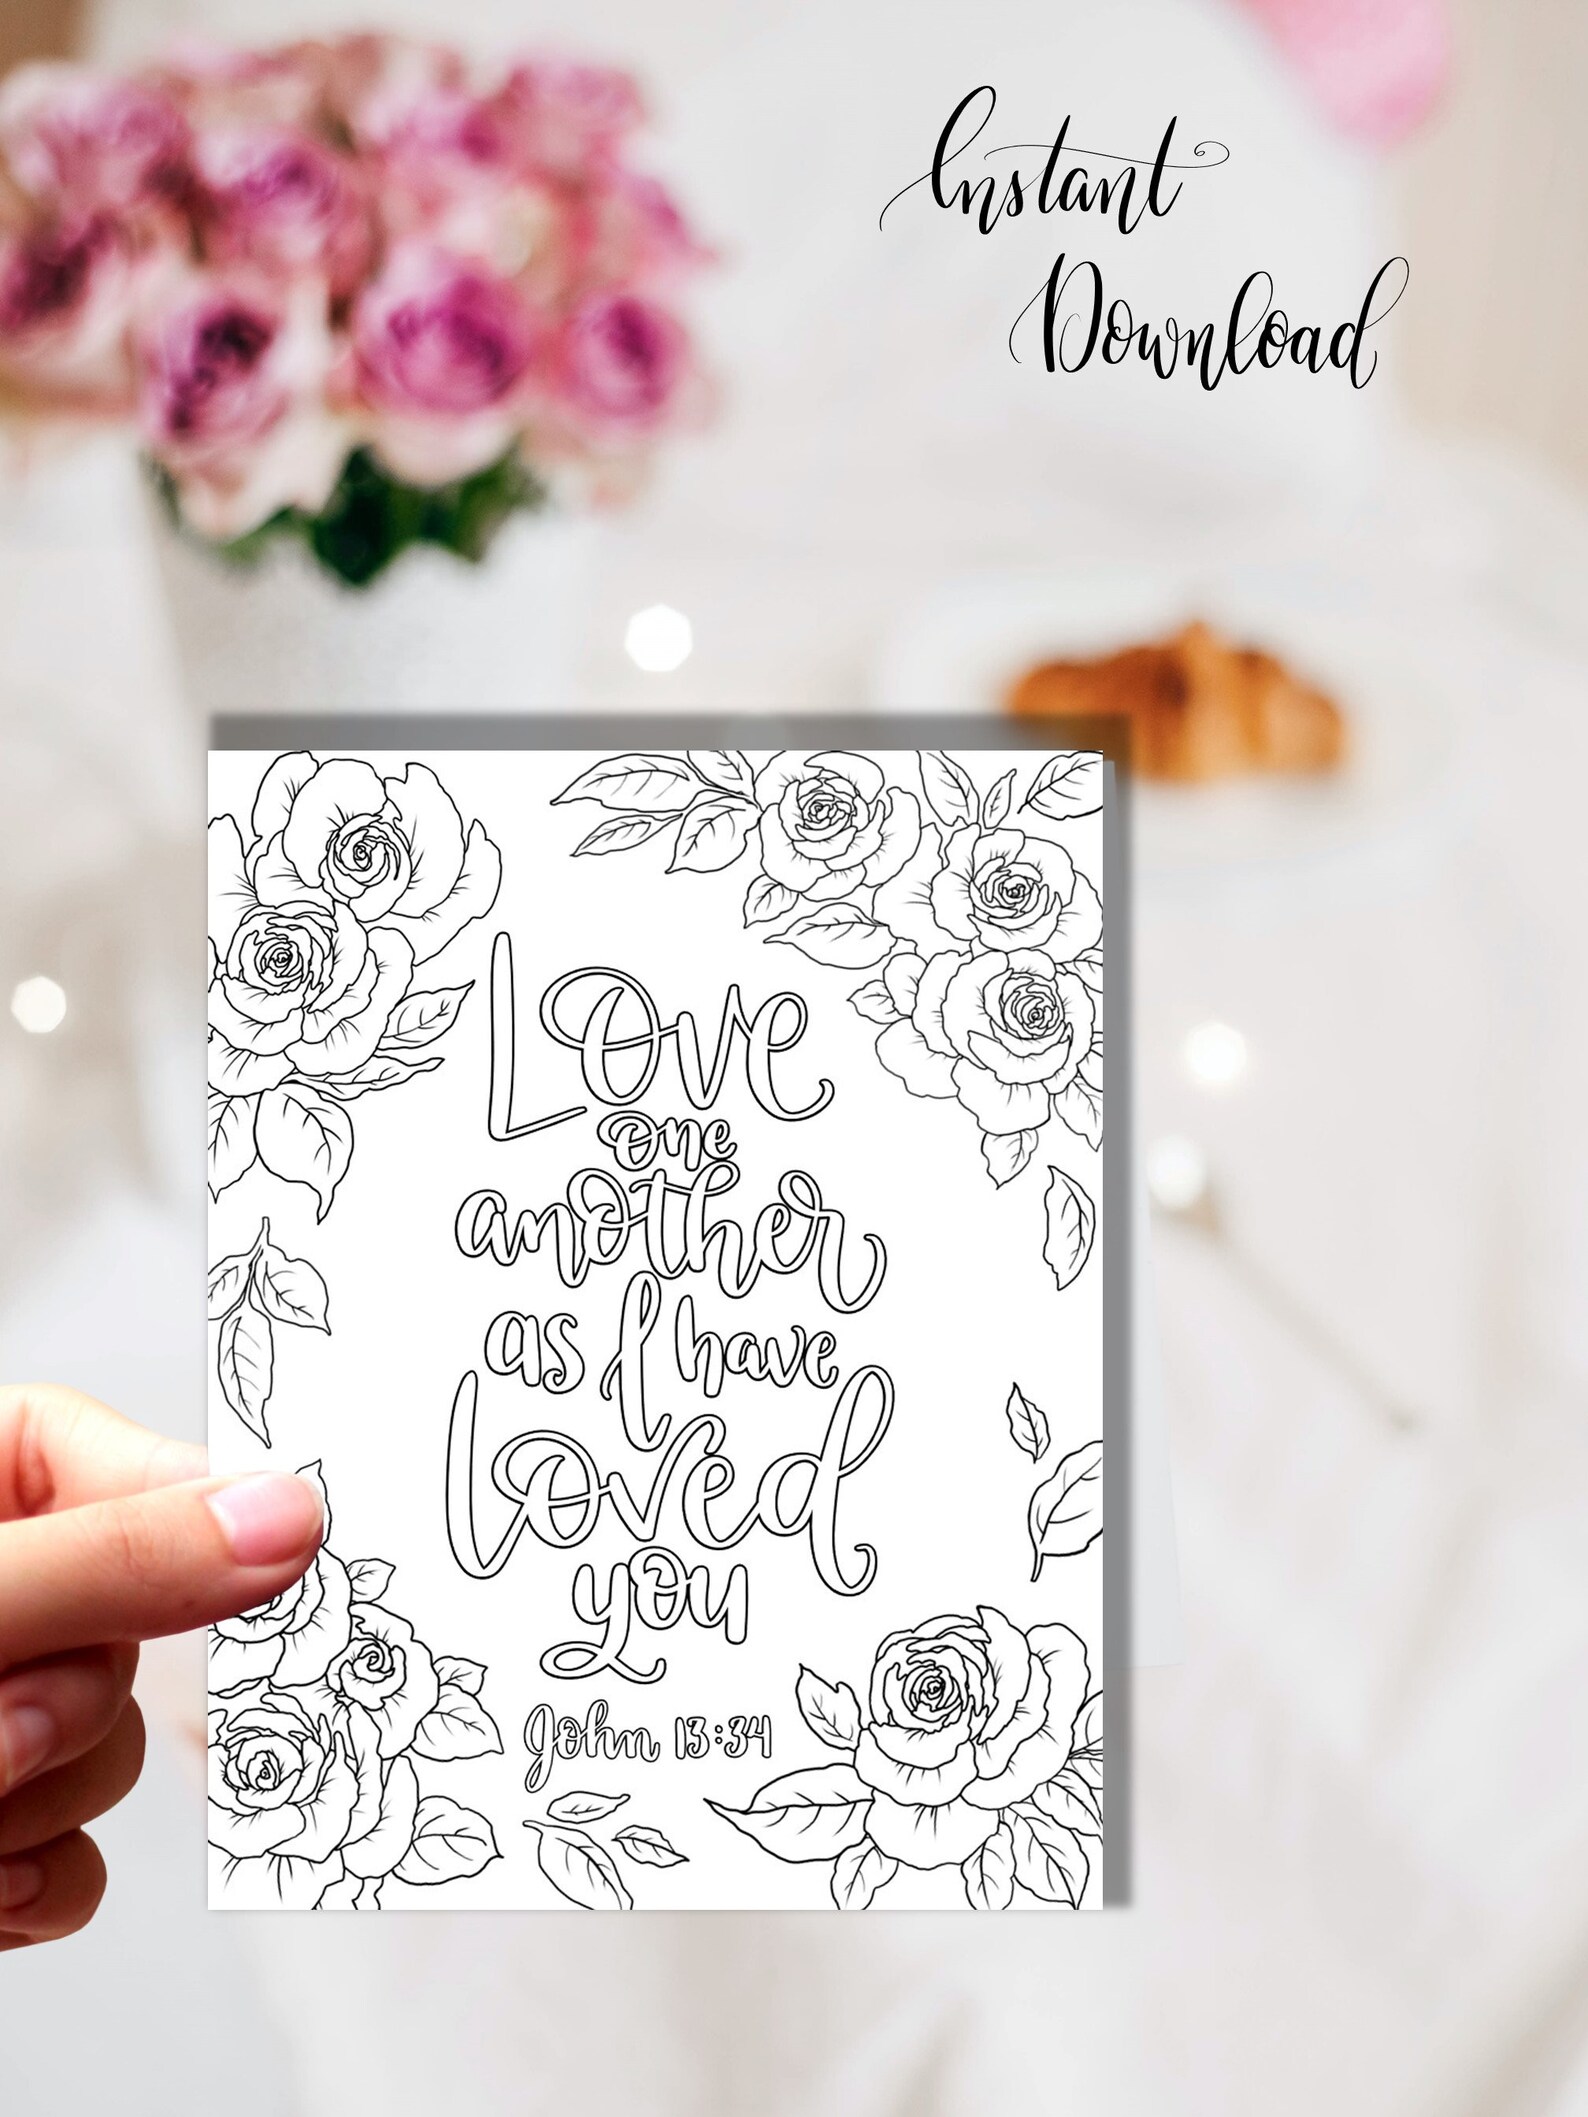 Instant
Download
Love
one
another
as I have
loved
you
John 13:34